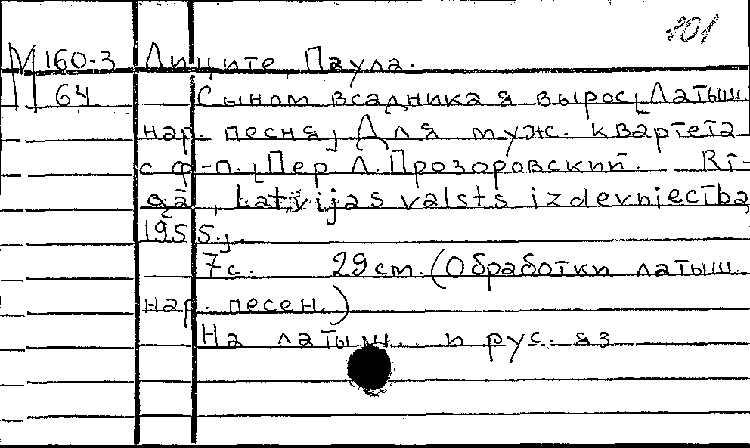 201
М 160-3 Лиците, Паула.
64 Сыном всадника я вырос, Латыш.
нар. песня, Для муж. квартета
с ф-п., Пер Л. Прозоровский. Rī-
gā, Latvijas valsts izdevniecība,
1955.,
7с. 29 cm. (Обработки латыш.
нар. песен.)
На латыш. и рус. яз